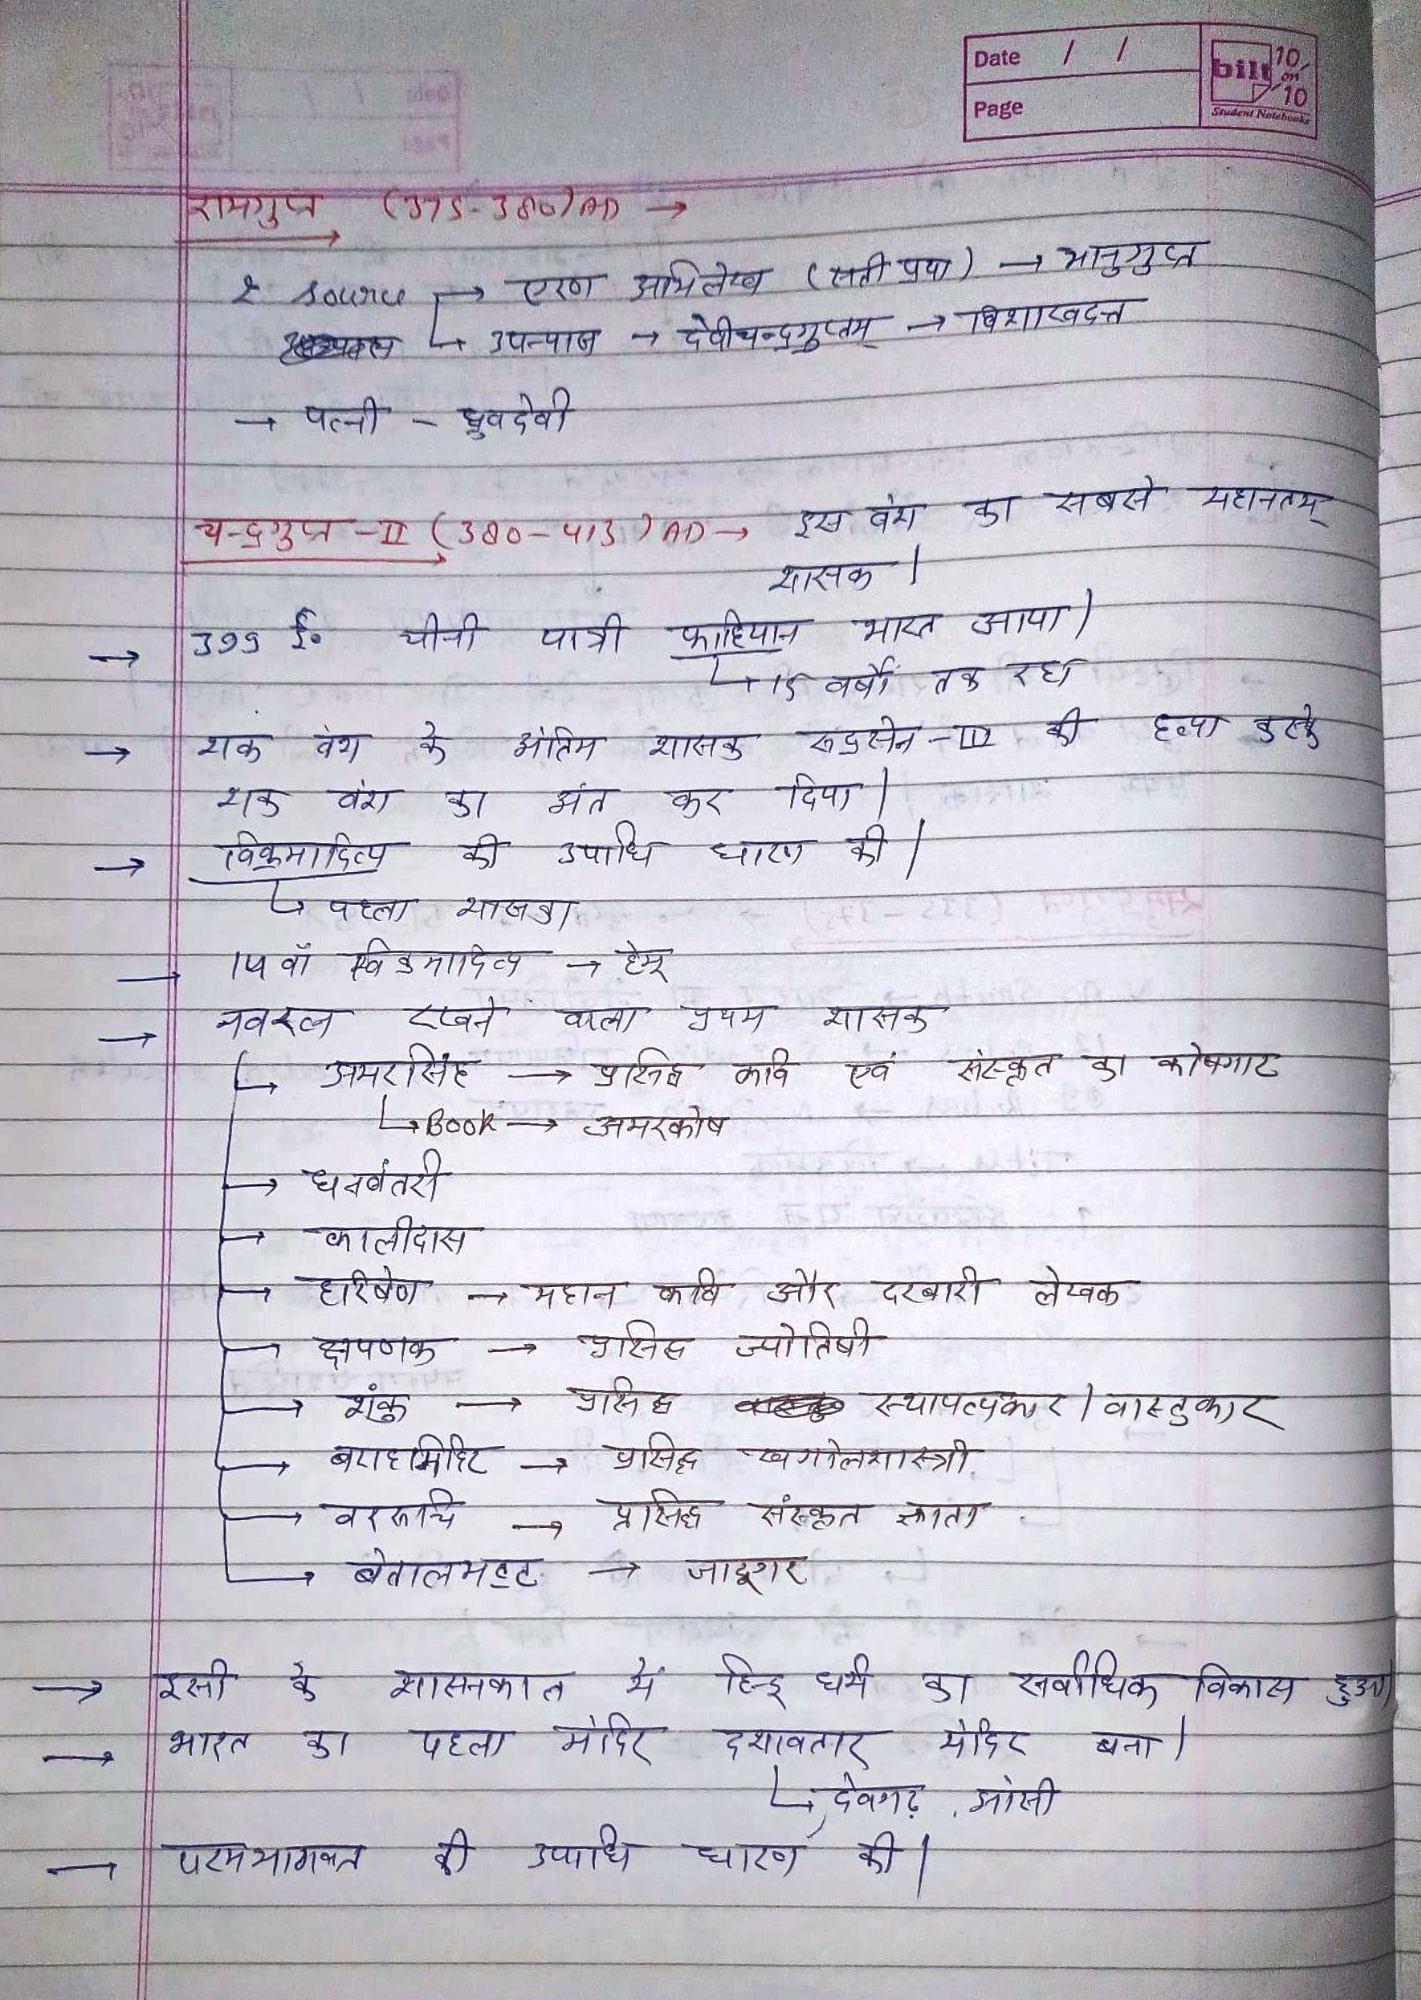 Date / /
Page
bilt 10 on 10
Student Notebooks
रामगुप्त (375-380)AD →
2 source → एरण अभिलेख (सती प्रथा) → भानुगुप्त
↳ उपन्यास → देवीचन्द्रगुप्तम् → विशाखदत्त
→ पत्नी - ध्रुवदेवी
चन्द्रगुप्त -II (380-413)AD → इस वंश का सबसे महानतम्
शासक।
→ 399 ई० चीनी यात्री फाहियान भारत आया।
↳ 15 वर्षों तक रहा
→ शक वंश के अंतिम शासक रुद्रसेन-III की हत्या करके
शक वंश का अंत कर दिया।
→ विक्रमादित्य की उपाधि धारण की।
↳ पहला शासक
→ 14 वाँ विक्रमादित्य → हेमू
→ नवरत्न रखने वाला प्रथम शासक
↳ अमरसिंह → प्रसिद्ध कवि एवं संस्कृत का कोषगार
↳ Book → अमरकोष
→ धनवंतरी
→ कालीदास
→ हरिषेण → महान कवि और दरबारी लेखक
→ क्षपणक → प्रसिद्ध ज्योतिषी
→ शंकु → प्रसिद्ध स्थापत्यकार / वास्तुकार
→ बराहमिहिर → प्रसिद्ध खगोलशास्त्री
→ वररूचि → प्रसिद्ध संस्कृत ज्ञाता
→ बेतालभट्ट → जादूगर
→ इसी के शासनकाल में हिन्दू धर्म का सर्वाधिक विकास हुआ।
→ भारत का पहला मंदिर दशावतार मंदिर बना।
↳ देवगढ़, झांसी
→ परमभागवत की उपाधि धारण की।